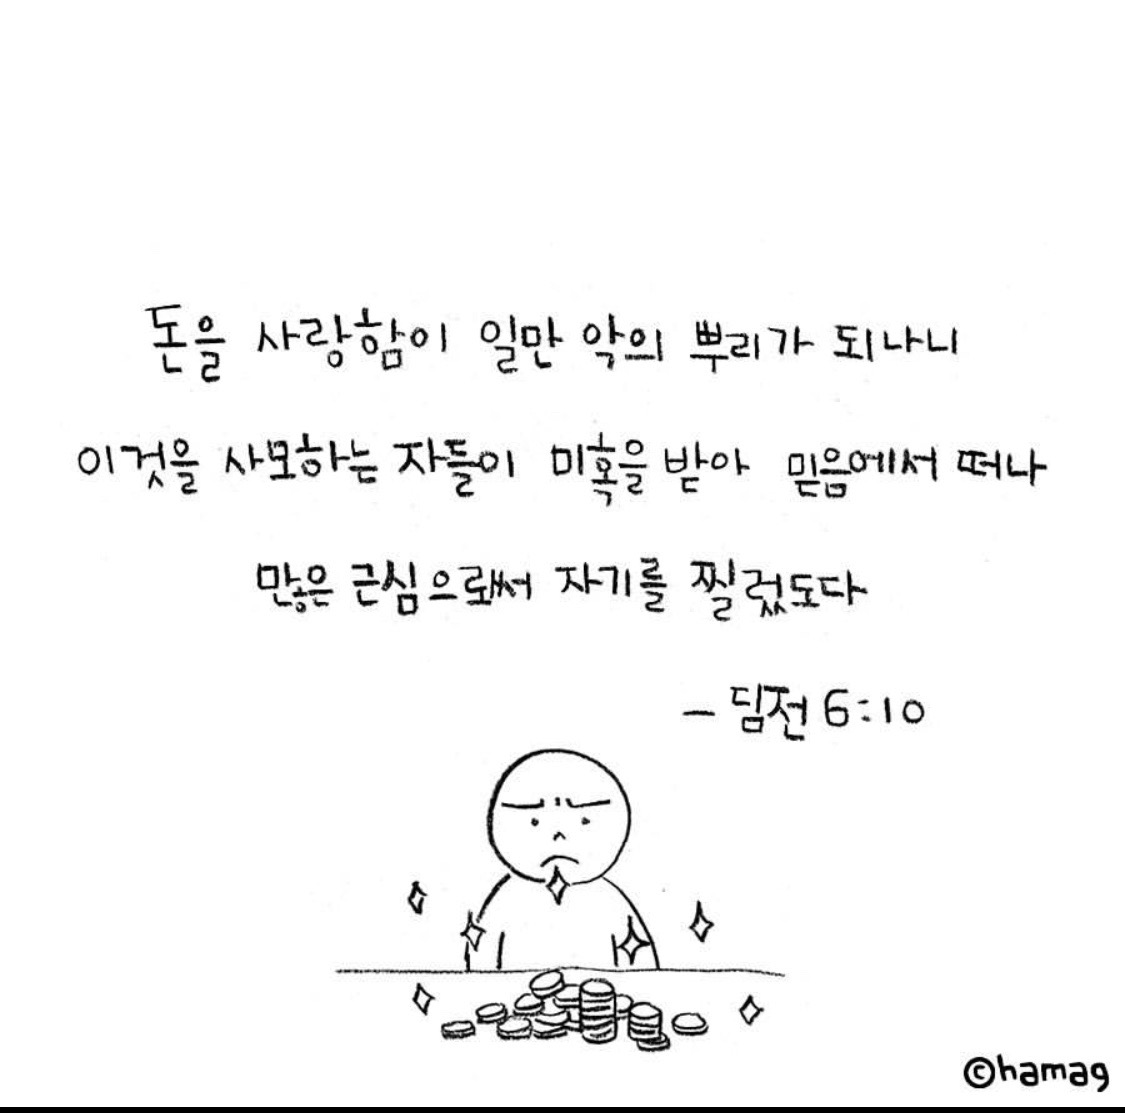 돈을 사랑함이 일만 악의 뿌리가 되나니
이것을 사모하는 자들이 미혹을 받아 믿음에서 떠나
많은 근심으로써 자기를 찔렀도다
– 딤전 6:10
©hamag